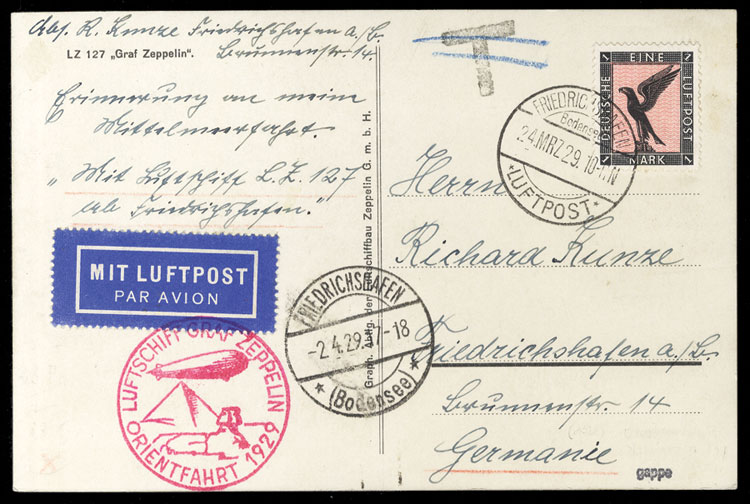 Abs. R. Kunze Friedrichshafen a/B.
Brunnenstr. 14.
LZ 127 „Graf Zeppelin".
Erinnerung an meine
Mittelmeerfahrt.
"Mit Luftschiff L.Z. 127
ab Friedrichshafen."
MIT LUFTPOST
PAR AVION
LUFTSCHIFF GRAF ZEPPELIN
ORIENTFAHRT 1929
FRIEDRICHSHAFEN
-2.4.29. 17-18
(Bodensee)
Graph. Abtlg. der Luftschiffbau Zeppelin G. m. b. H.
T
EINE
DEUTSCHE
LUFTPOST
1 MARK 1
FRIEDRICHSHAFEN
Bodensee
24.MRZ.29.
LUFTPOST
Herrn
Richard Kunze
Friedrichshafen a/B.
Brunnenstr. 14
Germanie
gappe